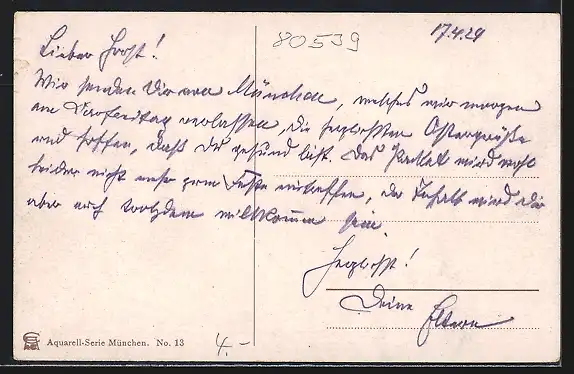 80539
17.4.24
Lieber Horst!
Wir senden Dir aus München, welches wir morgen
am Karfreitag verlassen, die herzlichsten Ostergrüße
und hoffen, daß du gesund bist. Das Packet wird wohl
leider nicht mehr zum Feste eintreffen, der Inhalt wird dir
aber auch trotzdem willkommen sein.
Herzlichst!
Deine Eltern
Aquarell-Serie München. No. 13
4.-